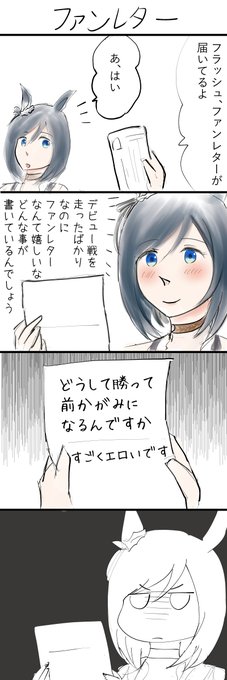 ファンレター
フラッシュ、ファンレターが
届いてるよ
あ、はい
デビュー戦を
走ったばかり
なのに
ファンレター
なんて嬉しいな
どんな事が
書いているんでしょう
どうして勝って
前かがみに
なるんですか
すごくエロいです